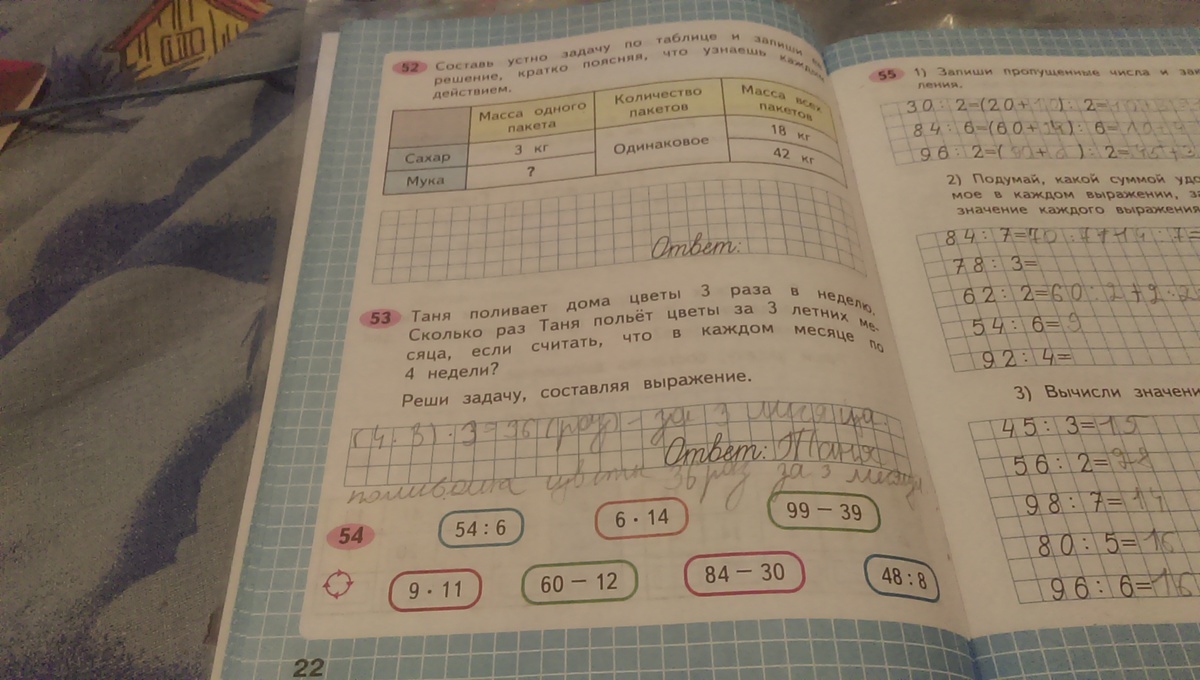 52 Составь устно задачу по таблице и запиши её
решение, кратко поясняя, что узнаешь каждым
действием.
Масса одного пакета Количество пакетов Масса всех пакетов
Сахар 3 кг Одинаковое 18 кг
Мука ? 42 кг
Ответ:
53 Таня поливает дома цветы 3 раза в неделю.
Сколько раз Таня польёт цветы за 3 летних ме-
сяца, если считать, что в каждом месяце по
4 недели?
Реши задачу, составляя выражение.
(4·3)·3=36(раз) – за 3 месяца.
Ответ: Таня
цветы 36 раз за 3 месяца
54 54 : 6 6 · 14 99 − 39
9 · 11 60 − 12 84 − 30 48 : 8
22
55 1) Запиши пропущенные числа и
ления.
30 : 2=(20+10) : 2=
84 : 6=(60+24) : 6=10+
96 : 2=(90+6) : 2=45+3
2) Подумай, какой суммой
мое в каждом выражении,
значение каждого выражения
84 : 7=70:7+14:7=
78 : 3=
62 : 2=60:2+2:2
54 : 6=9
92 : 4=
3) Вычисли
45 : 3=15
56 : 2=28
98 : 7=14
80 : 5=16
96 : 6=16